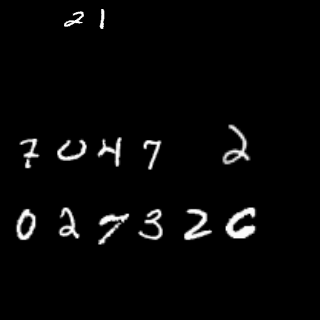 21
7047 2
027326